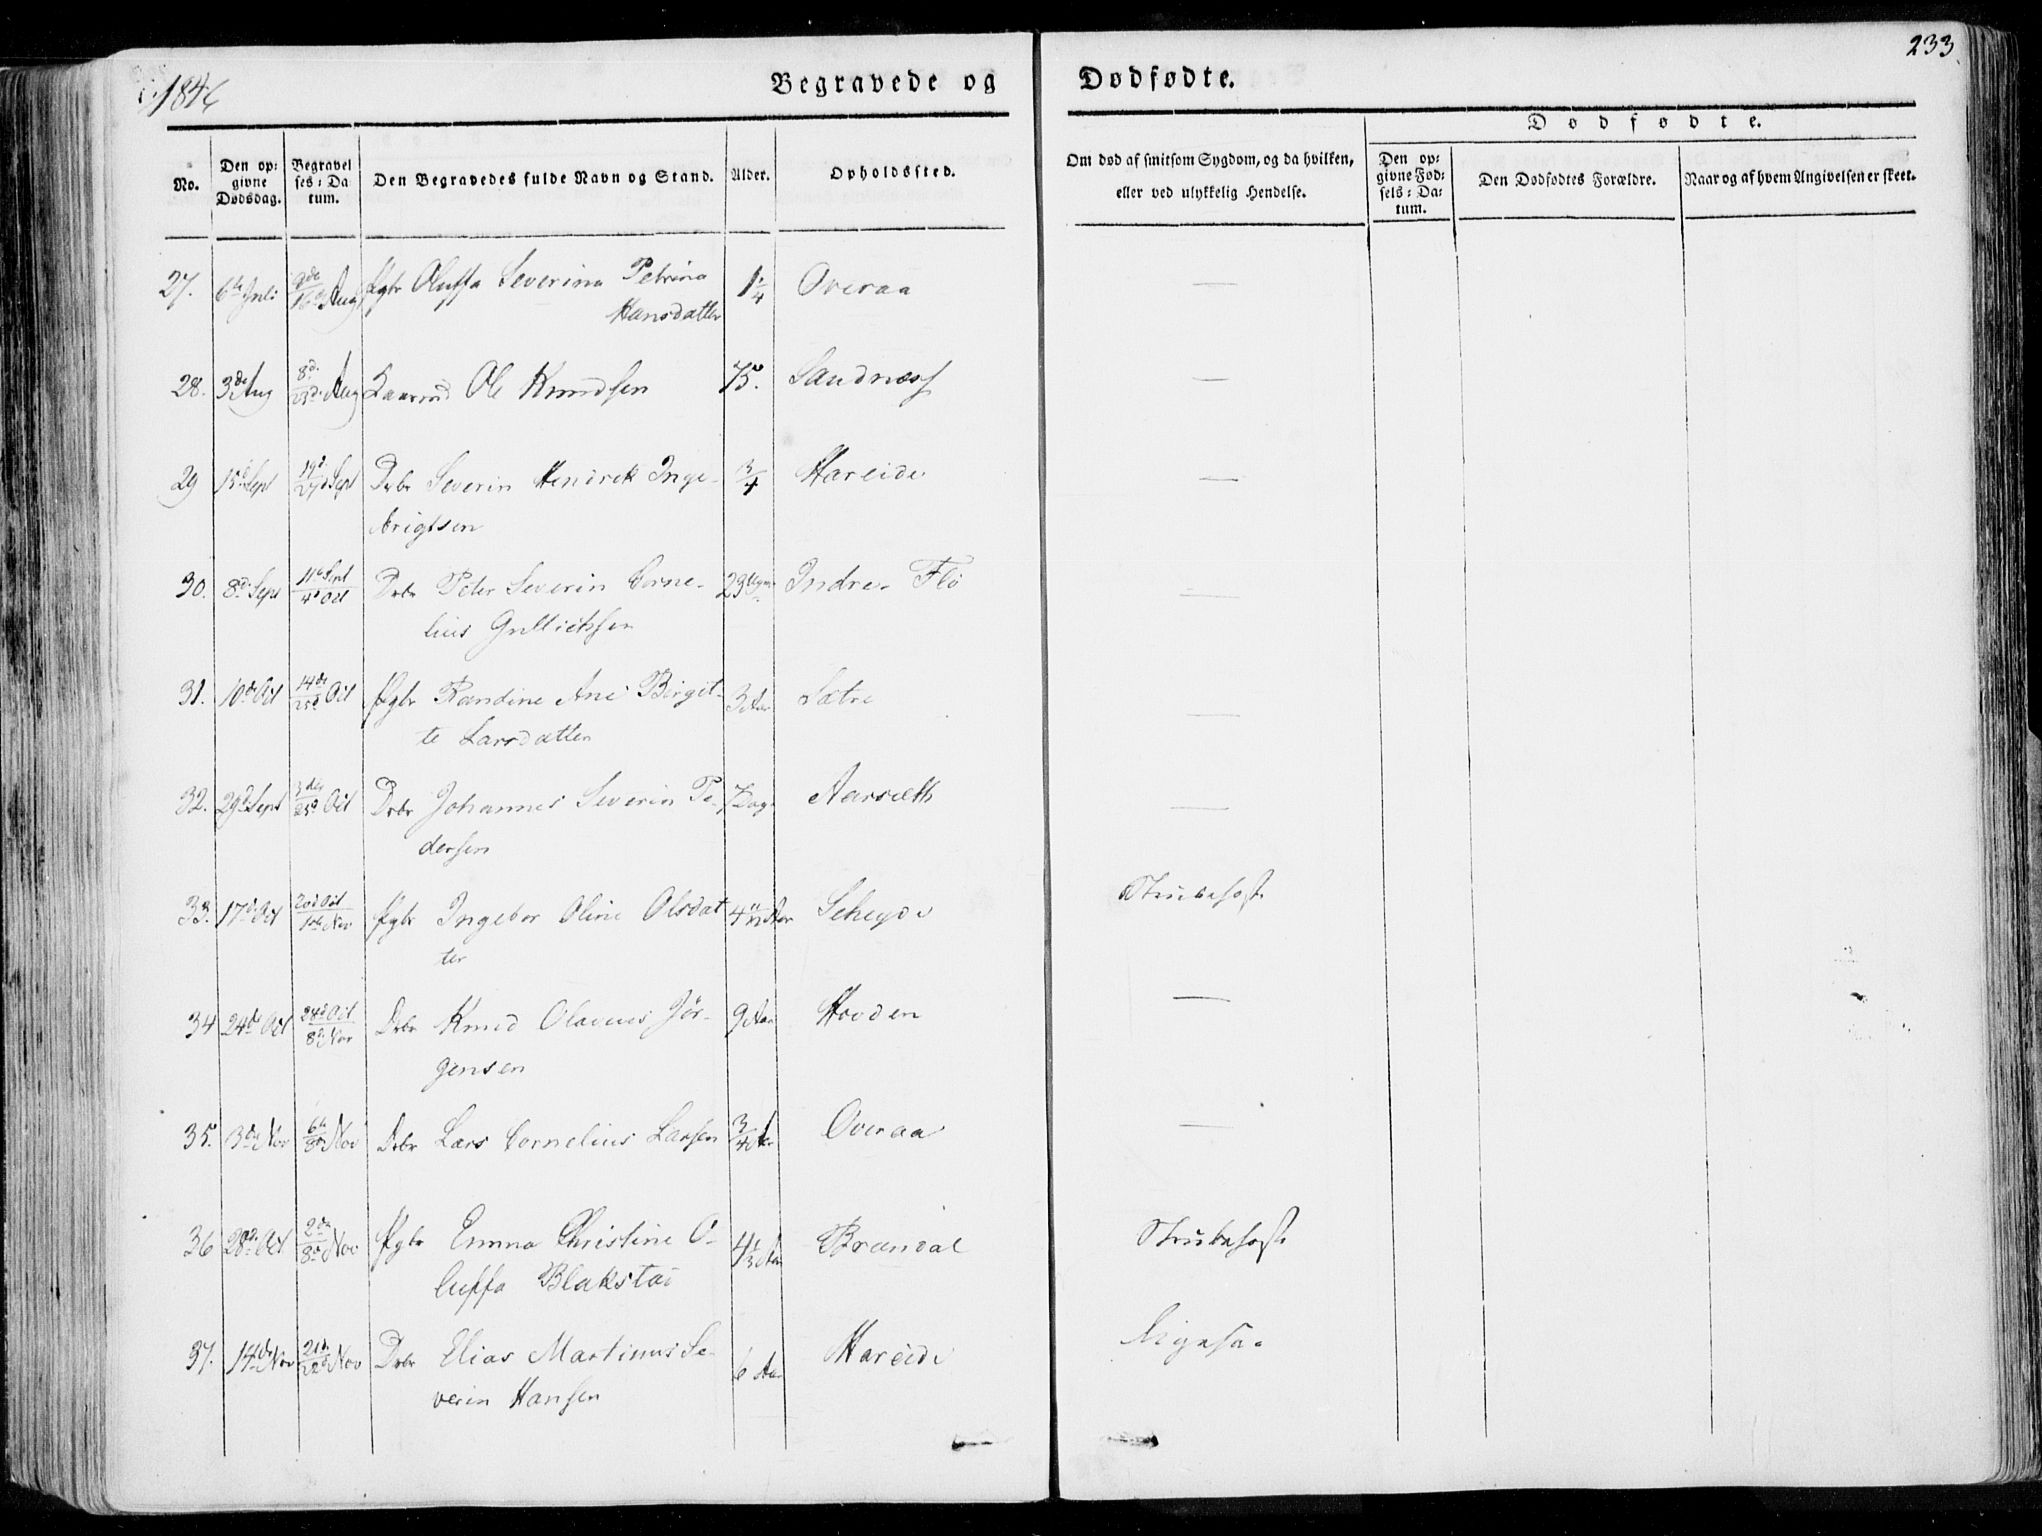 1846
Begravede og Dødfødte.
233.
No.
Den opgivne Dødsdag.
Begravelses-Datum.
Den Begravedes fulde Navn og Stand.
Alder.
Opholdssted.
Om død af smitsom Sygdom, og da hvilken, eller ved ulykkelig Hendelse.
Dødfødte.
Den opgivne Fødsels-Datum.
Den Dødfødtes Forældre.
Naar og af hvem Angivelsen er skeet.
27. 6te Juli 9de/16de Aug Pgbr Oluffa Severina Petrina 1 1/4 Overaa —
Hansdatter
28. 3de Aug 8de Aug Ole Knudsen 75. Sandnæss —
29 15de Sept 19d/27d Sept Drbr Severin Hendrik Inge- 3/4 Hareide —
brigtsen
30. 8de Sept 11te Sept/4de Oct Drbr Peter Severin Corne- 23 Indre Flø —
lius Gullichsen
31. 10de Oct 14de/25d Oct Pgbr Randine Ane Birgit- 3 Aar Sætre —
te Larsdatter
32. 29de Sept 3die/25d Oct Drbr Johannes Severin Pe- 7 Dage Aarsæth —
dersen
33. 17de Oct 20d Oct/1ste Nov Pgbr Ingebor Oline Olsdat 4 Aar Scheyde Strubehoste
ter
34 24de Oct 28d Oct/8de Nov Drbr Knud Olavus Jör- 9 Aar Hovden —
gensen
35. 3de Nov 6te/8de Nov Drbr Lars Cornelius Larsen 3/4 Aar Overaa —
36 28de Oct 2de/8de Nov Pgbr Emma Christine O- 4 1/2 Aar Brandal Strubehoste
luffa Blakstad
37. 14de Nov 21d/22d Nov Drbr Elias Martinus Se- 6 Aar Hareide
verin Hansen